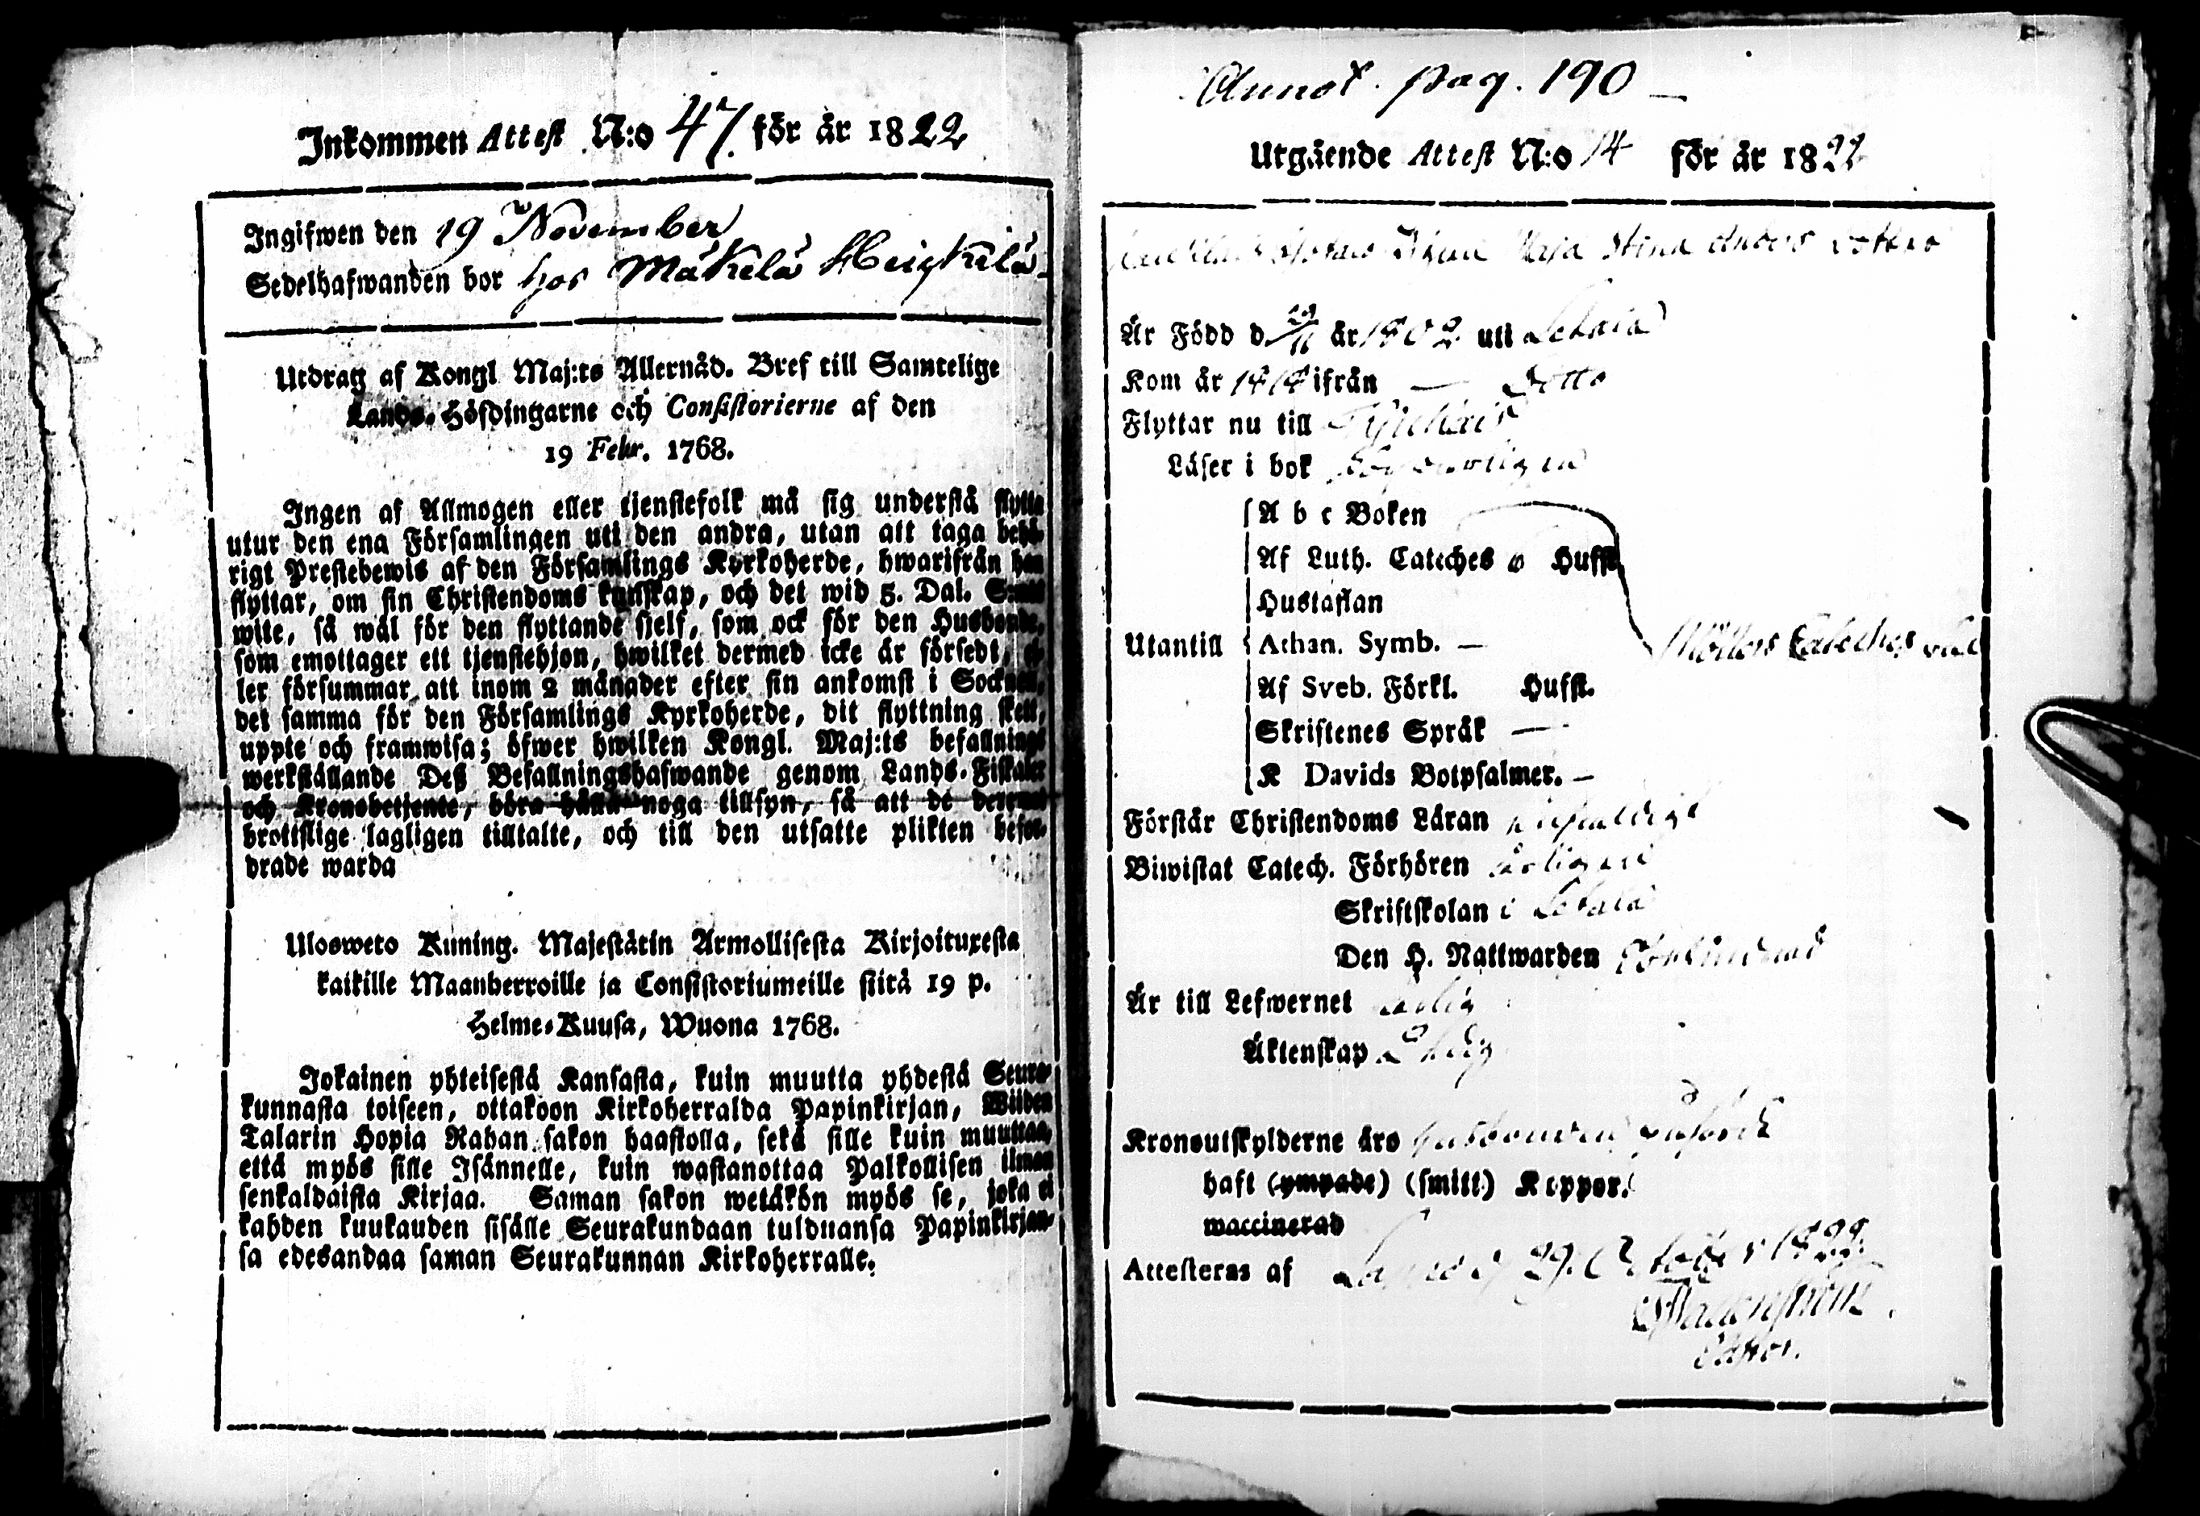 Inkommen Attest N:o 47. för år 1822
Ingifwen den 19 November
Sedelhafwanden bor hos Mäkelä Heickilä
Utdrag af Kongl Maj:ts Allernåd. Bref till Samtelige
Lands-Höfdingarne och Consistorierne af den
19 Febr. 1768.
Ingen af Allmogen eller tjenstefolk må sig understå flytta
utur den ena Församlingen uti den andra, utan att taga behö-
rigt Prestebewis af den Församlings Kyrkoherde, hwarifrån han
flyttar, om sin Christendoms kunskap, och det wid 5. Dal. S:mt
wite, så wäl för den flyttande sjelf, som ock för den Husbonde,
som emottager ett tjenstehjon, hwilket dermed icke är försedt, el-
ler försummar att inom 2 månader efter sin ankomst i Socknen,
det samma för den Församlings Kyrkoherde, dit flyttning skett,
uppte och framwisa; öfwer hwilken Kongl. Maj:ts befallnings
werkställande Deß Befallningshafwande genom Lands-Fiskaler
och Kronobetjente, böra hålla noga tillsyn, så att de deremot
brottslige lagligen tilltalte, och till den utsatte plikten befor-
drade warda
Ulosweto Kuning. Majestätin Armollisesta Kirjoituxesta
kaikille Maanherroille ja Consistoriumeille siitä 19 p.
Helme-Kuusa, Wuona 1768.
Jokainen yhteisestä Kansasta, kuin muutta yhdestä Seura-
kunnasta toiseen, ottakoon Kirkoherralda Papinkirjan, Wiiden
Talarin Hopia Rahan sakon haastolla, sekä sille kuin muuttaa,
että myös sille Isännelle, kuin wastanottaa Palkollisen ilman
senkaldaista Kirjaa. Saman sakon wetäkön myös se, joka ei
kahden kuukauden sisälle Seurakundaan tulduansa Papinkirjan-
sa edesandaa saman Seurakunnan Kirkoherralle.
Annot. pag. 190
Utgående Attest N:o 14 för år 1822
Maja Stina Anders dotter
Är Född d. 29/11 år 1802 uti Letala
Kom år 1818 ifrån — Ditto
Flyttar nu till
Läser i bok
A b c Boken
Af Luth. Cateches o Hufst.
Hustaflan
Utantill Athan. Symb. — Möllers Cateches
Af Sveb. Förkl. Hufst.
Skriftenes Språk —
K Davids Botpsalmer. —
Förstår Christendoms Läran
Biwistat Catech. Förhören
Skriftskolan i Letala
Den H. Nattwarden
Är till Lefwernet
Äktenskap Ledig
Kronoutskylderne äro
haft (ympade) (smitt) Koppor.
waccinerad
Attesteras af 29. October 1822.